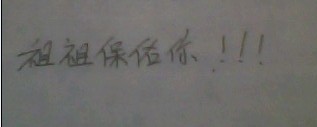 祖祖保佑你!!!